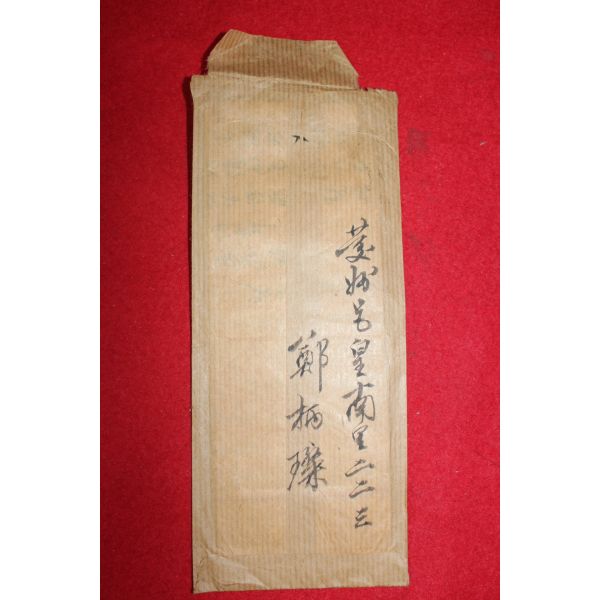 慶州邑皇南里二二三
鄭柄璨